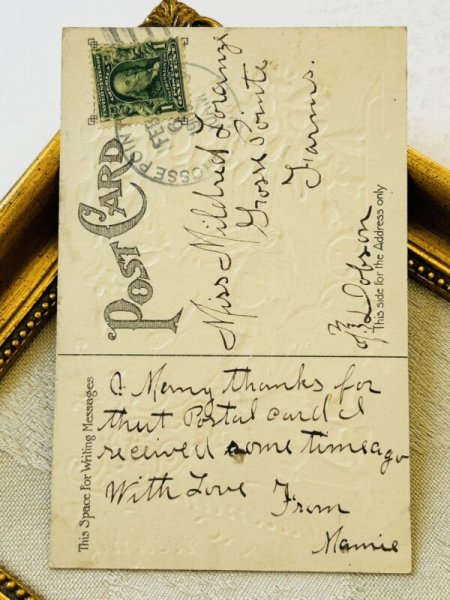 POST CARD
GROSSE POINT
FEB
6
1
1
Miss Mildred Loranger
Gross Pointe
Farms.
% Dobson
This side for the Address only
This Space For Writing Messages
Many thanks for
that Postal card I
received some time ago
With Love From
Mamie